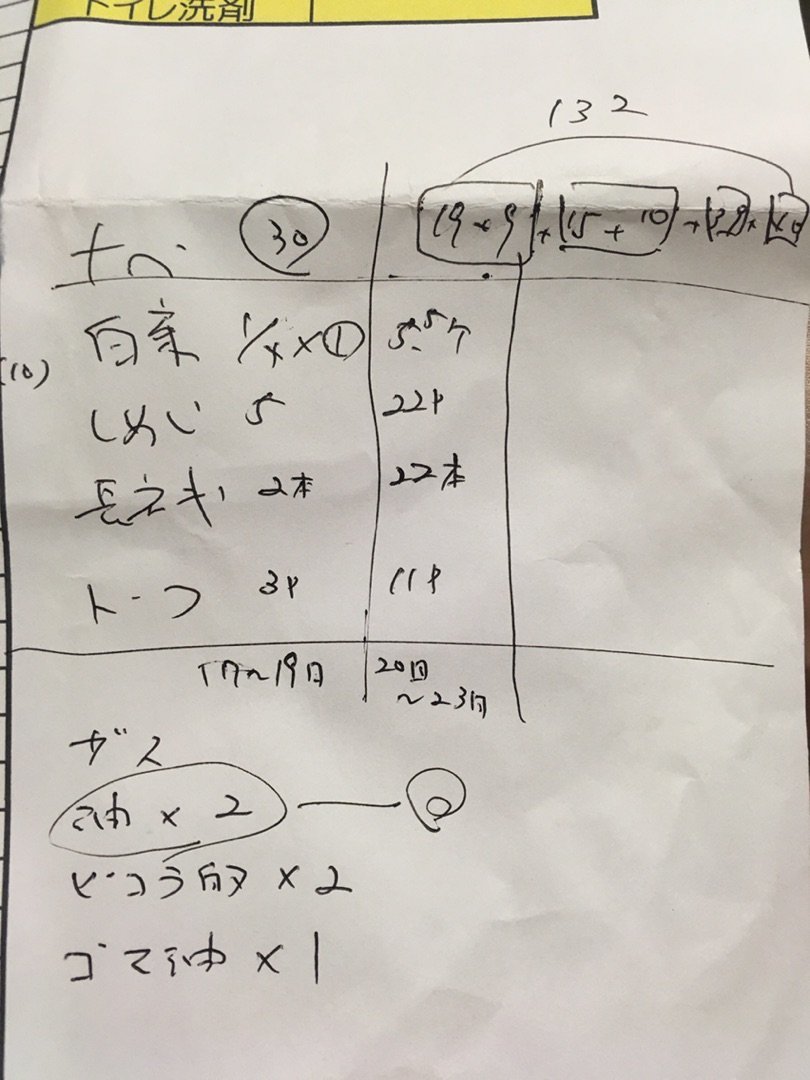 トイレ洗剤
132
ナベ 30 19+9 + 15 + 10 +
白菜 1/4×① 5.5ケ
(10)
しめじ 5 22P
長ネギ 2本 22本
トーフ 3P 11P
17〜19日 20日
〜23日
油 × 2 ②
× 2
ゴマ油 × 1